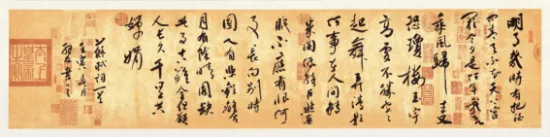 明月幾時有把酒
問青天不知天上宮
闕今夕是何年我欲
乘風歸去又
恐瓊樓玉宇
高處不勝寒
起舞弄清影
何似在人間轉
朱閣低綺戶照無
眠不應有恨何
事長向別時
圓人有悲歡離合
月有陰晴圓缺
此事古難全但願
人長久千里共
嬋娟
蘇軾詞一首